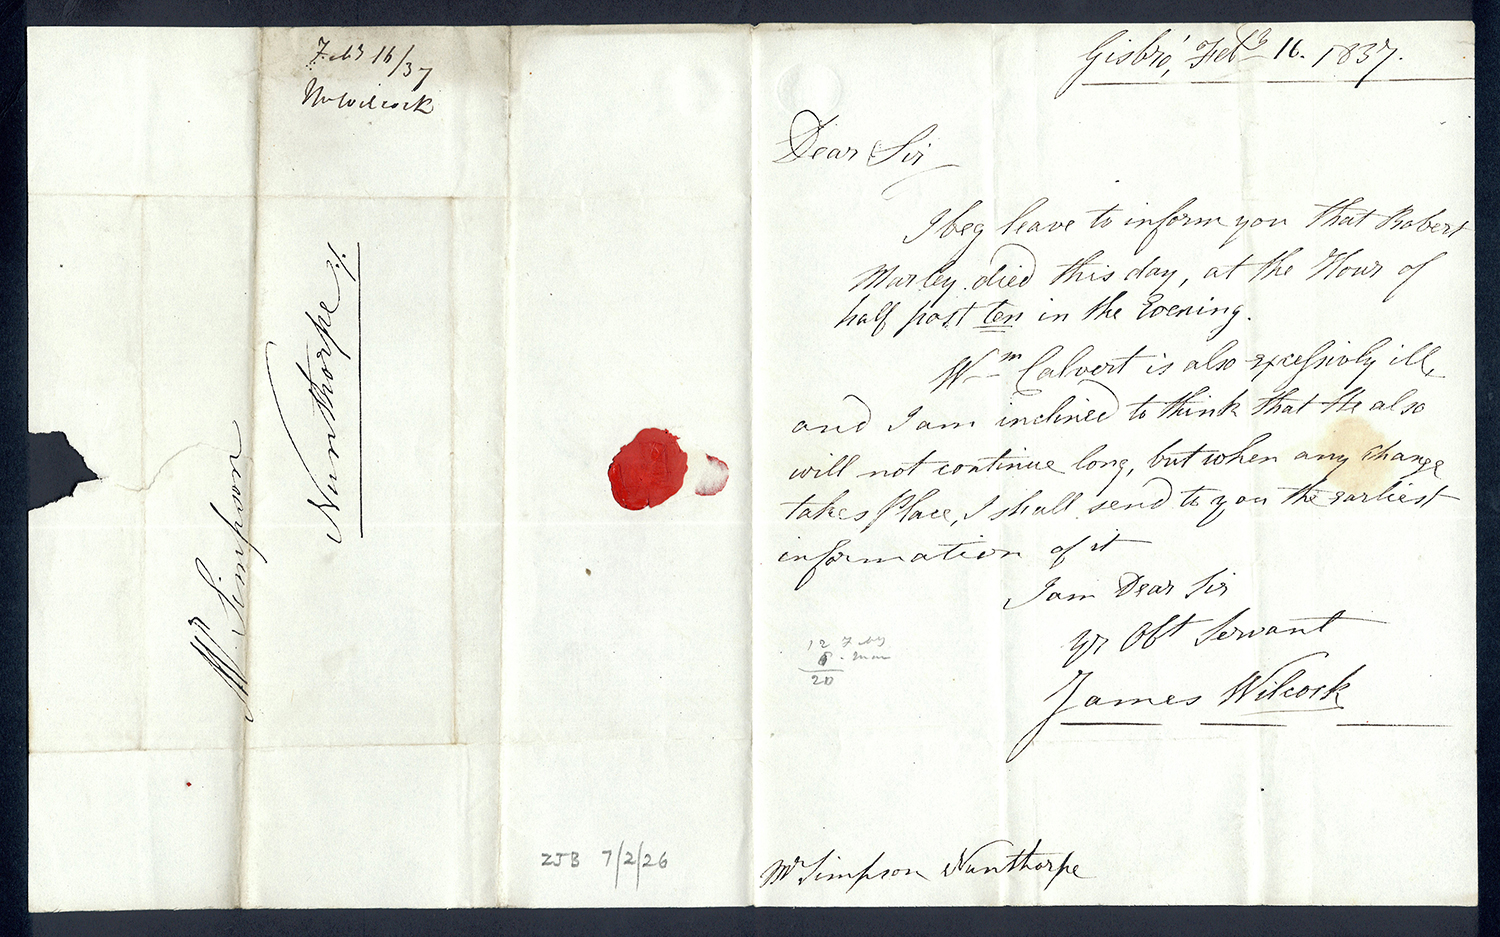 Feby 16/37
Mr Wilcock
Mr Simpson
Nunthorpe
ZJB 7/2/26
Gisbro', Feby 16. 1837.
Dear Sir
I beg leave to inform you that Robert
Marley died this day, at the Hour of
half past ten in the Evening.
Wm Calvert is also excessivly ill,
and I am inclined to think that He also
will not continue long, but when any change
takes Place, I shall send to you the earliest
information of it
I am Dear Sir
yr Obt Servant
James Wilcock
12 Feby
8
20
Mr Simpson Nunthorpe